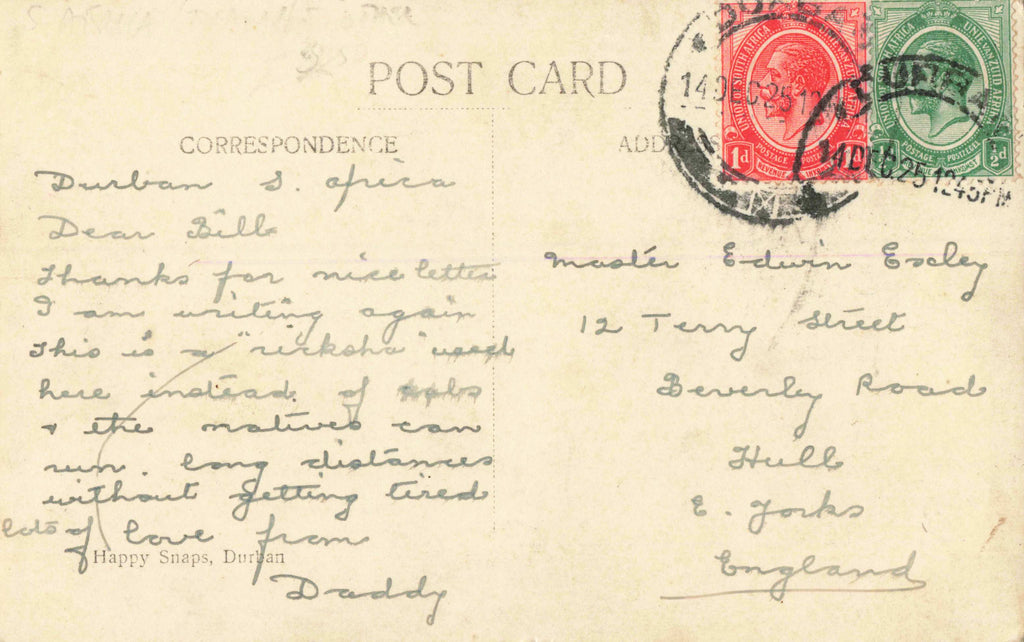 POST CARD
CORRESPONDENCE
Durban S. Africa
Dear Bill
Thanks for nice letter
I am writing again
This is a "ricksha" used
here instead of cabs
+ the natives can
run. long distances
without getting tired
lots of love from
Daddy
Happy Snaps, Durban
ADDRESS
14 DEC 25 12
14 DEC 25 12 45 PM
UNION OF SOUTH AFRICA
UNIE VAN ZUID AFRIKA
POSTAGE
REVENUE
1d
UNIE VAN ZUID AFRIKA
POSTAGE
½d
Master Edwin Exley
12 Terry Street
Beverley Road
Hull
E. Yorks
England